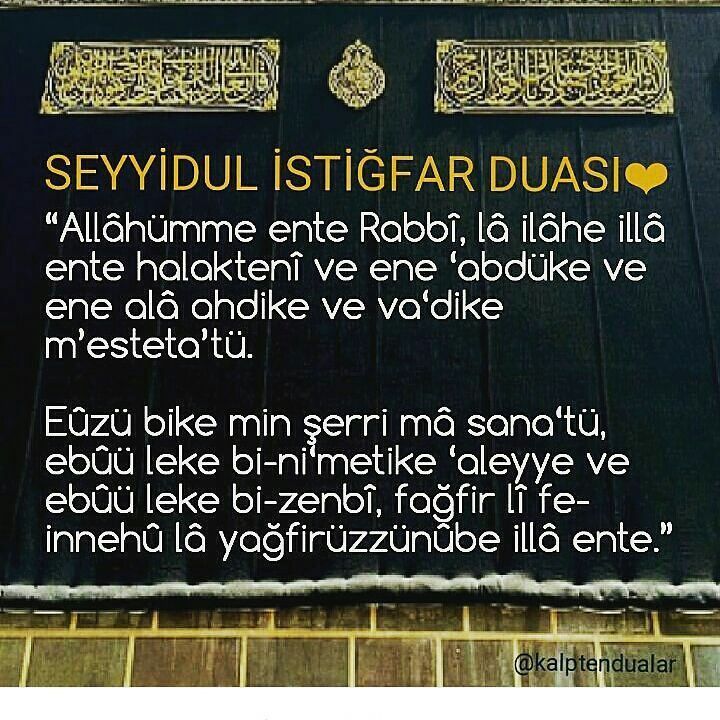 SEYYİDUL İSTİĞFAR DUASI❤
“Allâhümme ente Rabbî, lâ ilâhe illâ
ente halaktenî ve ene ‘abdüke ve
ene alâ ahdike ve va‘dike
m’esteta’tü.
Eûzü bike min şerri mâ sana‘tü,
ebûü leke bi-ni‘metike ‘aleyye ve
ebûü leke bi-zenbî, fağfir lî fe-
innehû lâ yağfirüzzünûbe illâ ente.”
@kalptendualar